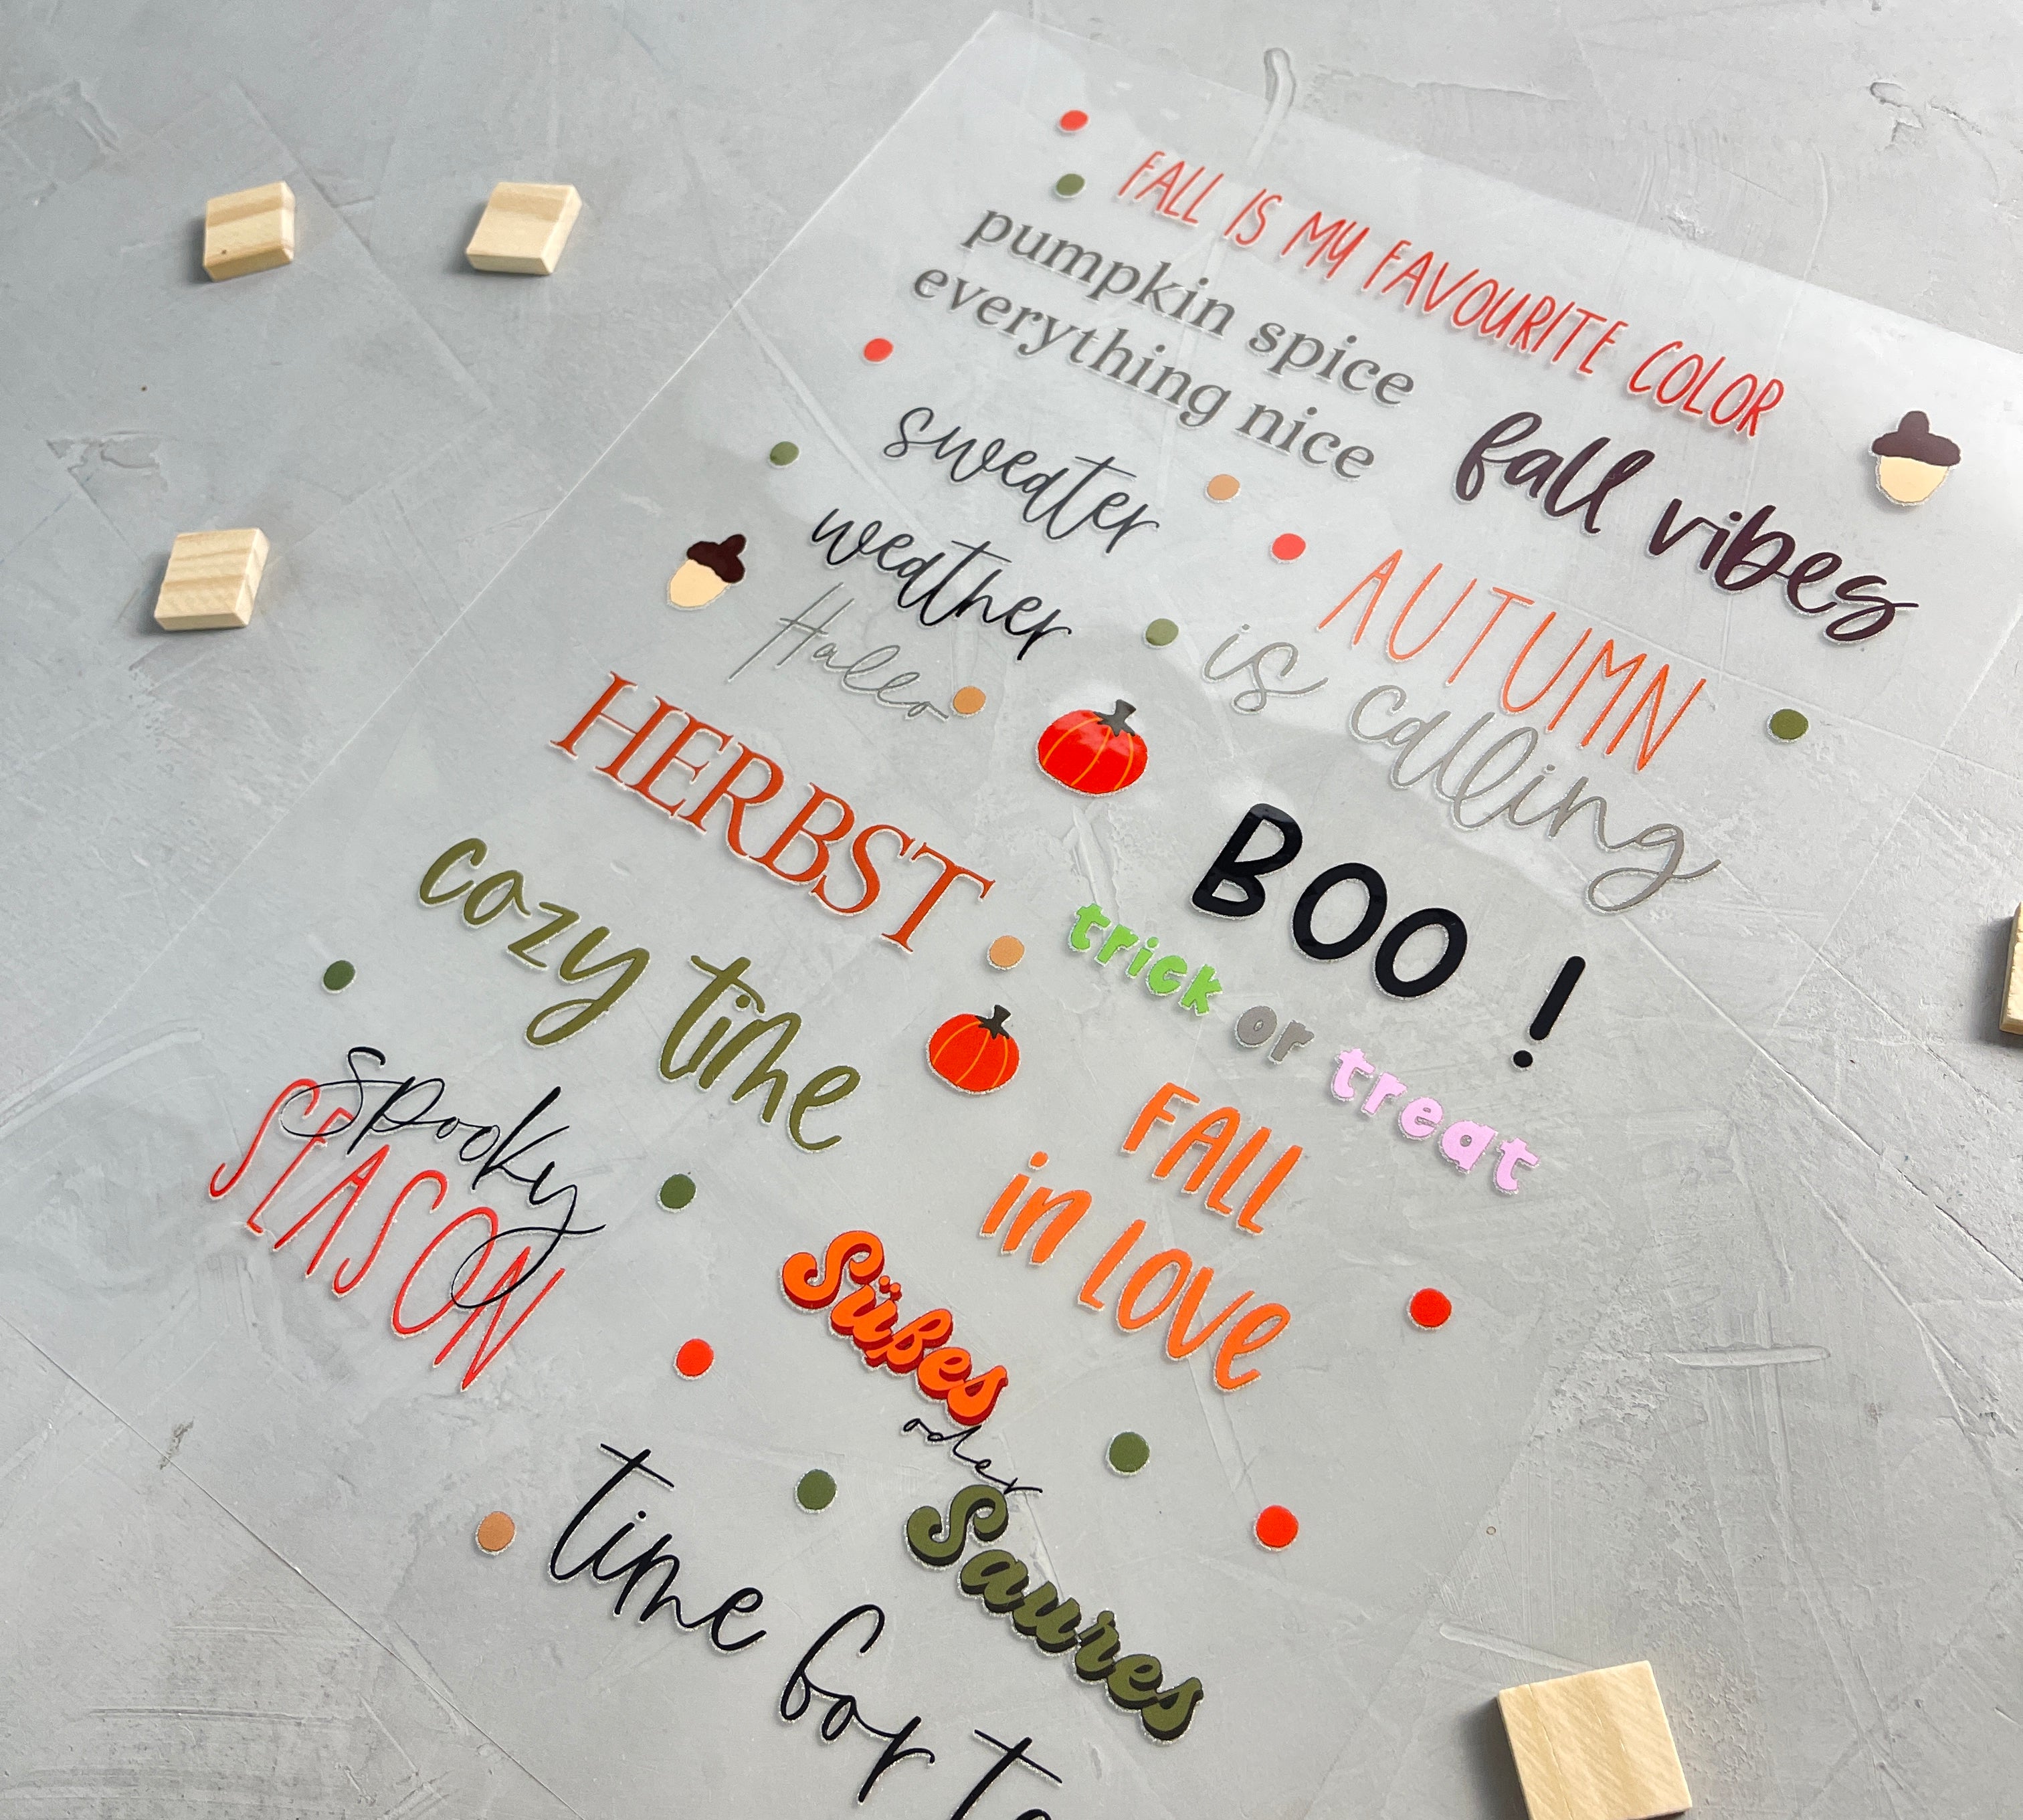 FALL IS MY FAVOURITE COLOR
pumpkin spice
everything nice
fall vibes
sweater
weather
AUTUMN
is calling
Hallo
HERBST
BOO !
cozy time
trick or treat
spooky
SEASON
FALL
in LOVE
Süßes
oder
Saures
time for